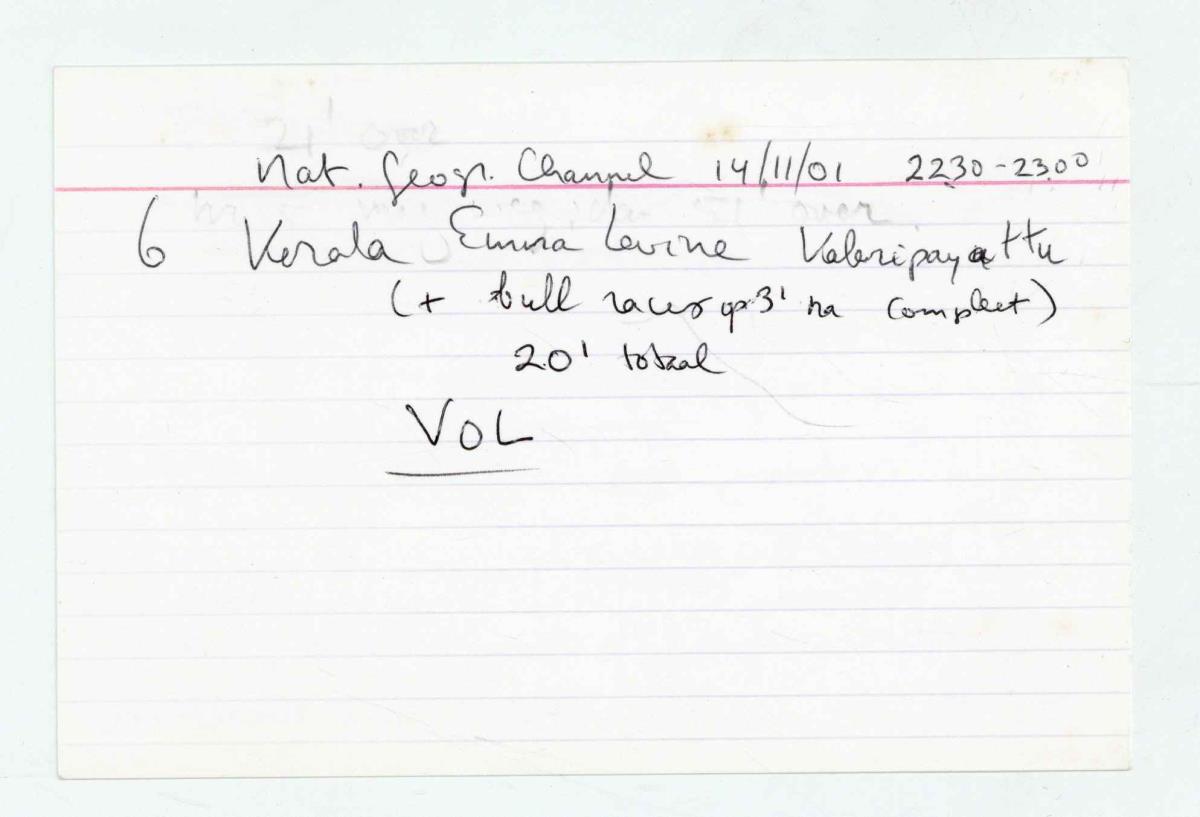 Nat. Geogr. Channel 14/11/01 2230-23.00
6 Kerala Emma Levine Kalaripayattu
(+ bull races op 3' na compleet)
20' totaal
VOL